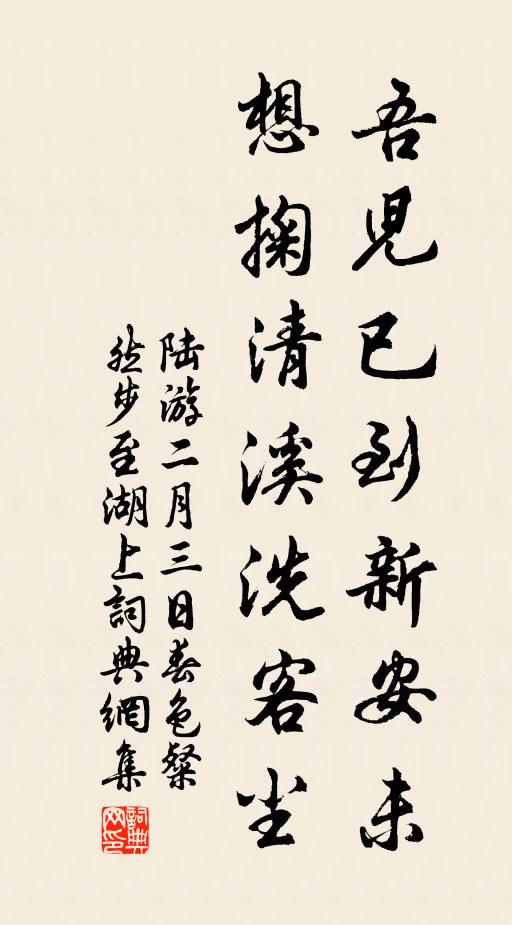 吾児已到新安未
想掬清溪洗客尘
陆游二月三日春色粲
然步至湖上詞典網集
詞典
网印